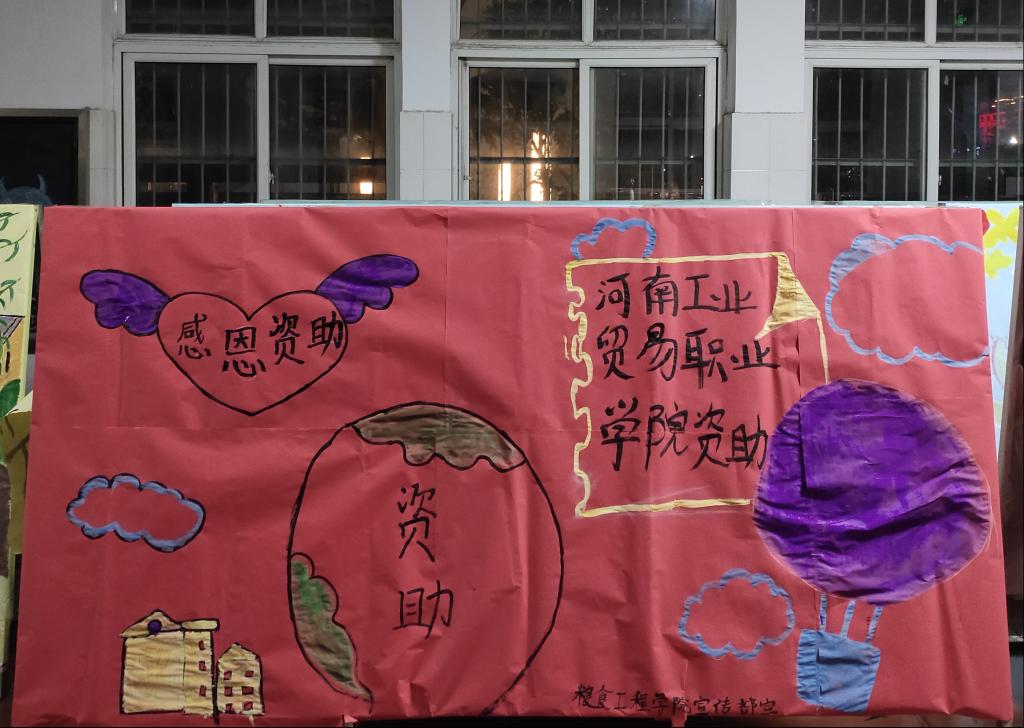 感恩资助
河南工业
贸易职业
学院资助
资
助
粮食工程学院宣传部宣